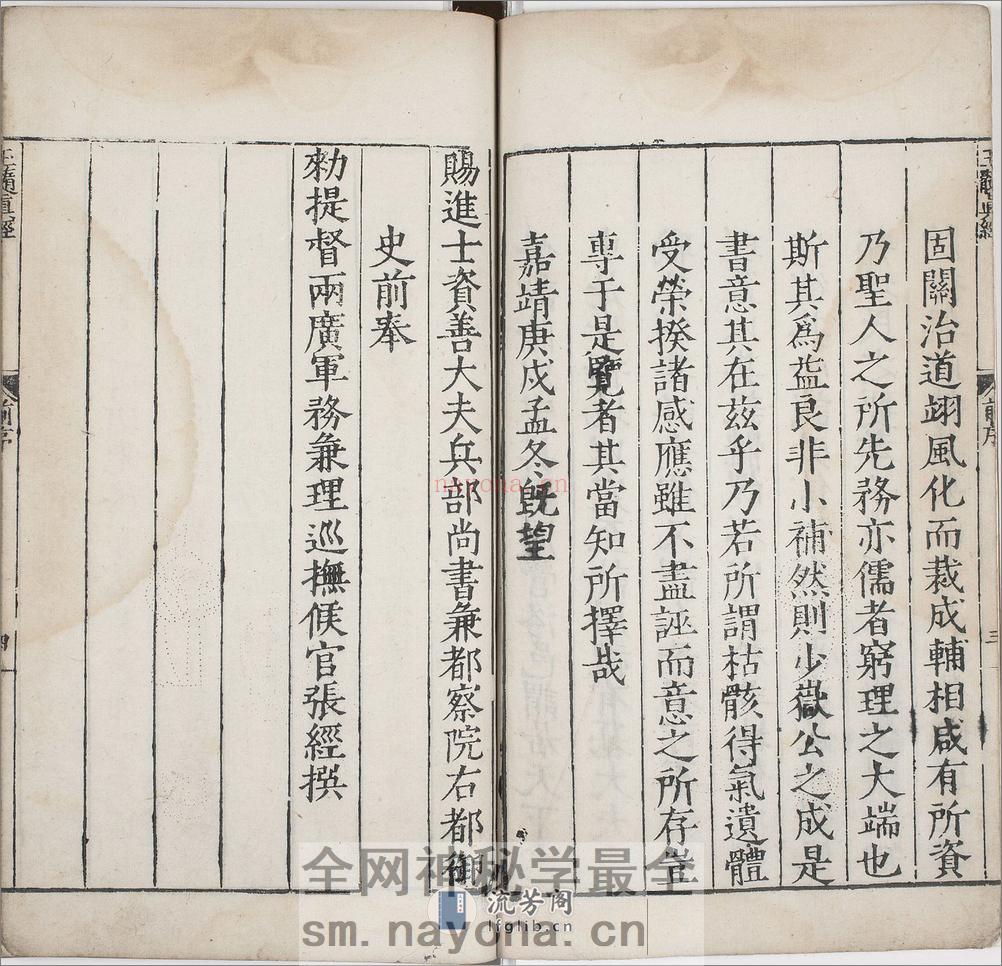 固關治道翊風化而裁成輔相咸有所資
乃聖人之所先務亦儒者窮理之大端也
斯其爲益良非小補然則少嶽公之成是
書意其在茲乎乃若所謂枯骸得氣遺體
受榮揆諸感應雖不盡誣而意之所存豈
專于是覽者其當知所擇哉
嘉靖庚戍孟冬旣望
賜進士資善大夫兵部尚書兼都察院右都御
史前奉
勑提督兩廣軍務兼理巡撫候官張經撰
玉髓真經
前序
三
玉髓眞經
前序
四
nayona.cn
全网神秘学最全
流芳阁
lfglib.cn
sm.nayona.cn